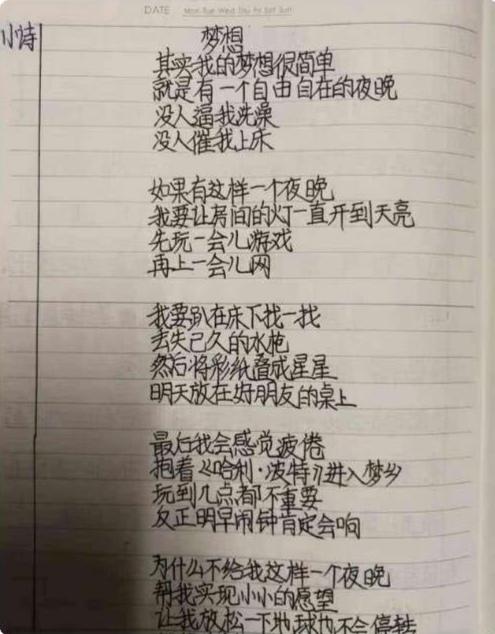 DATE Mon Tue Wed Thu Fri Sat Sun
小诗
梦想
其实我的梦想很简单
就是有一个自由自在的夜晚
没人逼我洗澡
没人催我上床
如果有这样一个夜晚
我要让房间的灯一直开到天亮
先玩一会儿游戏
再上一会儿网
我要趴在床下找一找
丢失已久的水枪
然后将彩纸叠成星星
明天放在好朋友的桌上
最后我会感觉疲倦
抱着《哈利·波特》进入梦乡
玩到几点都不重要
反正明早闹钟肯定会响
为什么不给我这样一个夜晚
帮我实现小小的愿望
让我放松一下地球也不会停转